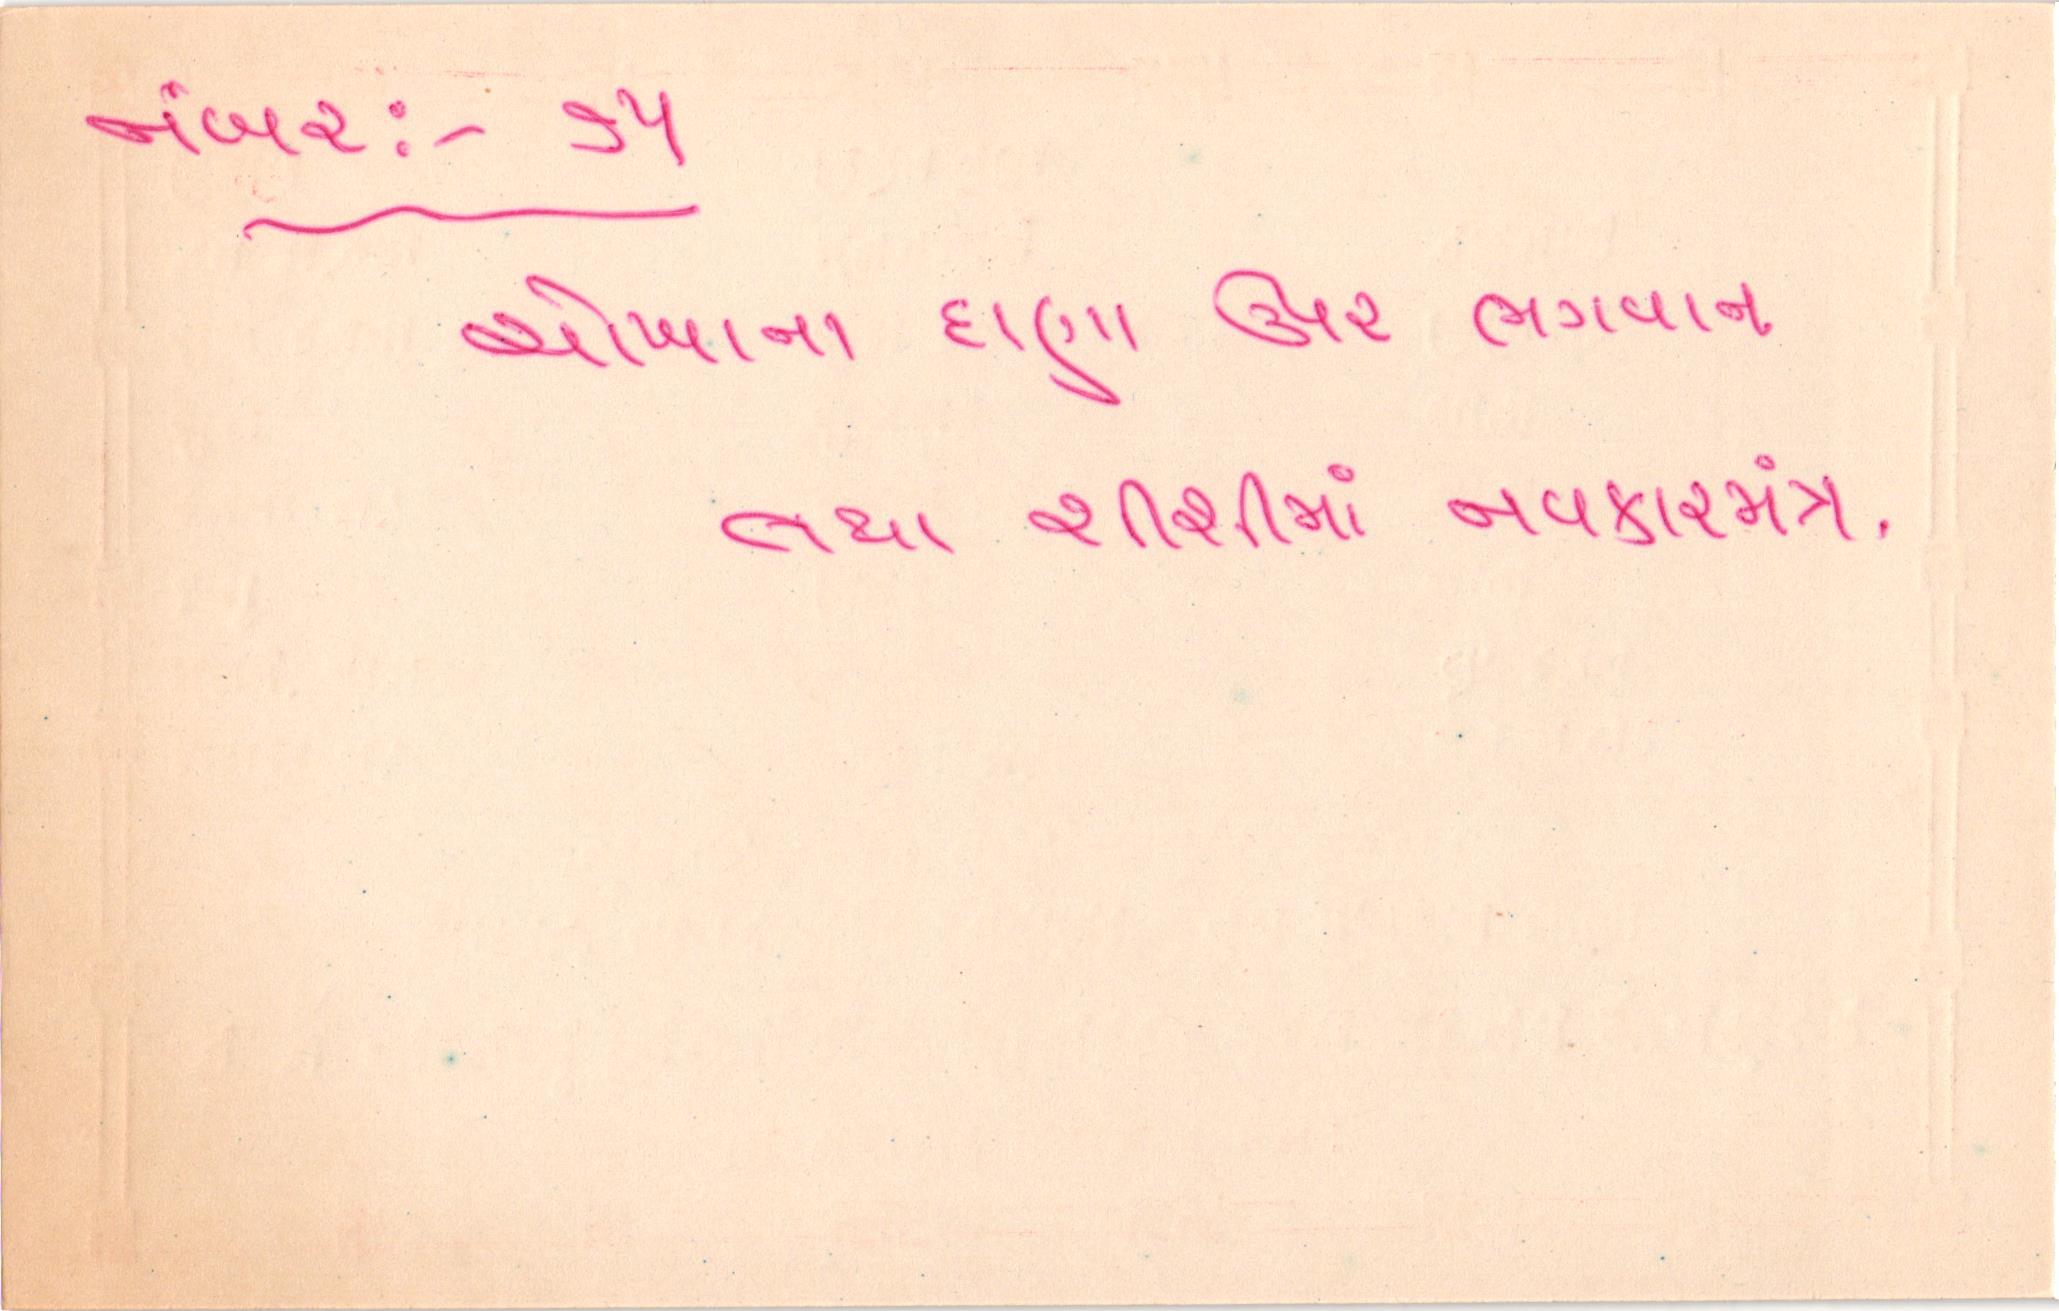 નંબર:- ૩૫
ચોખાના દાણા ઊપર ભગવાન
તથા શીશીમાં નવકારમંત્ર.